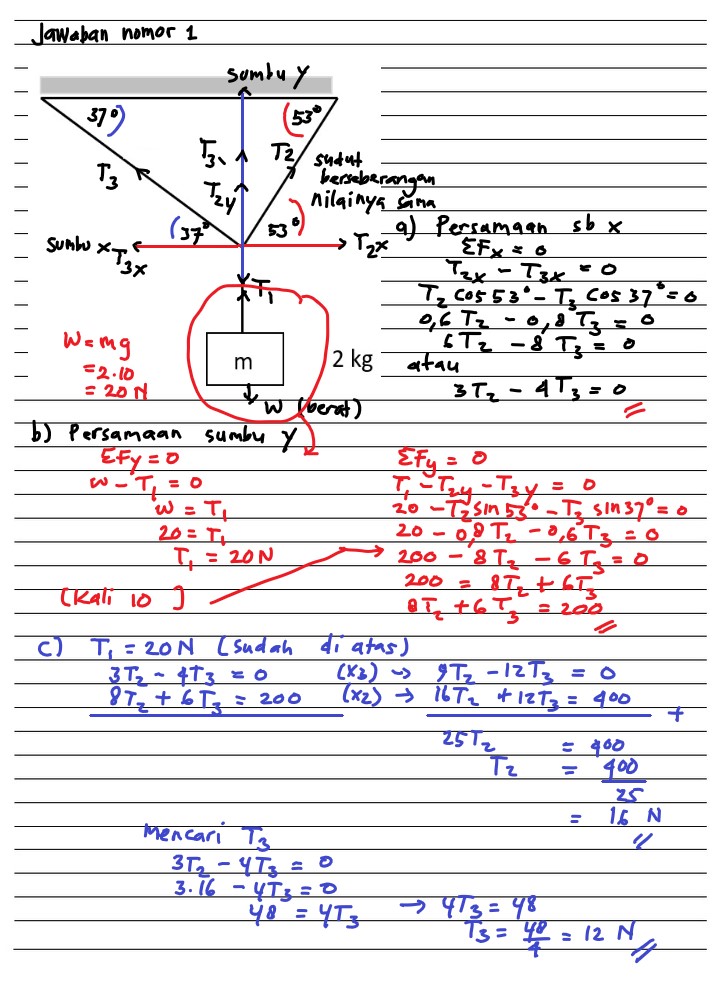 Jawaban nomor 1
sumbu y
37°
53°
T3y
T2
T3
T2y
sudut
berseberangan
nilainya sama
37°
53°
sumbu x
T3x
T2x
T1
W = mg
= 2.10
= 20 N
m
2 kg
W (berat)
a) Persamaan sb x
ΣFx = 0
T2x - T3x = 0
T2 cos 53° - T3 cos 37° = 0
0,6 T2 - 0,8 T3 = 0
6T2 - 8 T3 = 0
atau
3T2 - 4T3 = 0
b) Persamaan sumbu y
ΣFy = 0
W - T1 = 0
W = T1
20 = T1
T1 = 20 N
(Kali 10 ]
ΣFy = 0
T1 - T2y - T3y = 0
20 - T2 sin 53° - T3 sin 37° = 0
20 - 0,8 T2 - 0,6 T3 = 0
200 - 8T2 - 6 T3 = 0
200 = 8T2 + 6T3
8T2 + 6 T3 = 200
c) T1 = 20 N (sudah di atas)
3T2 - 4T3 = 0 (x3) → 9T2 - 12T3 = 0
8T2 + 6T3 = 200 (x2) → 16T2 + 12T3 = 400 +
25T2 = 400
T2 = 400
25
= 16 N
Mencari T3
3T2 - 4T3 = 0
3.16 - 4T3 = 0
48 = 4T3 → 4T3 = 48
T3 = 48/4 = 12 N